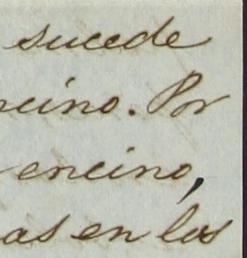 sucede
ncino. Por
encino,
as en los